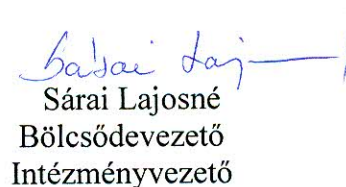 Sárai Lajosné
Bölcsődevezető
Intézményvezető